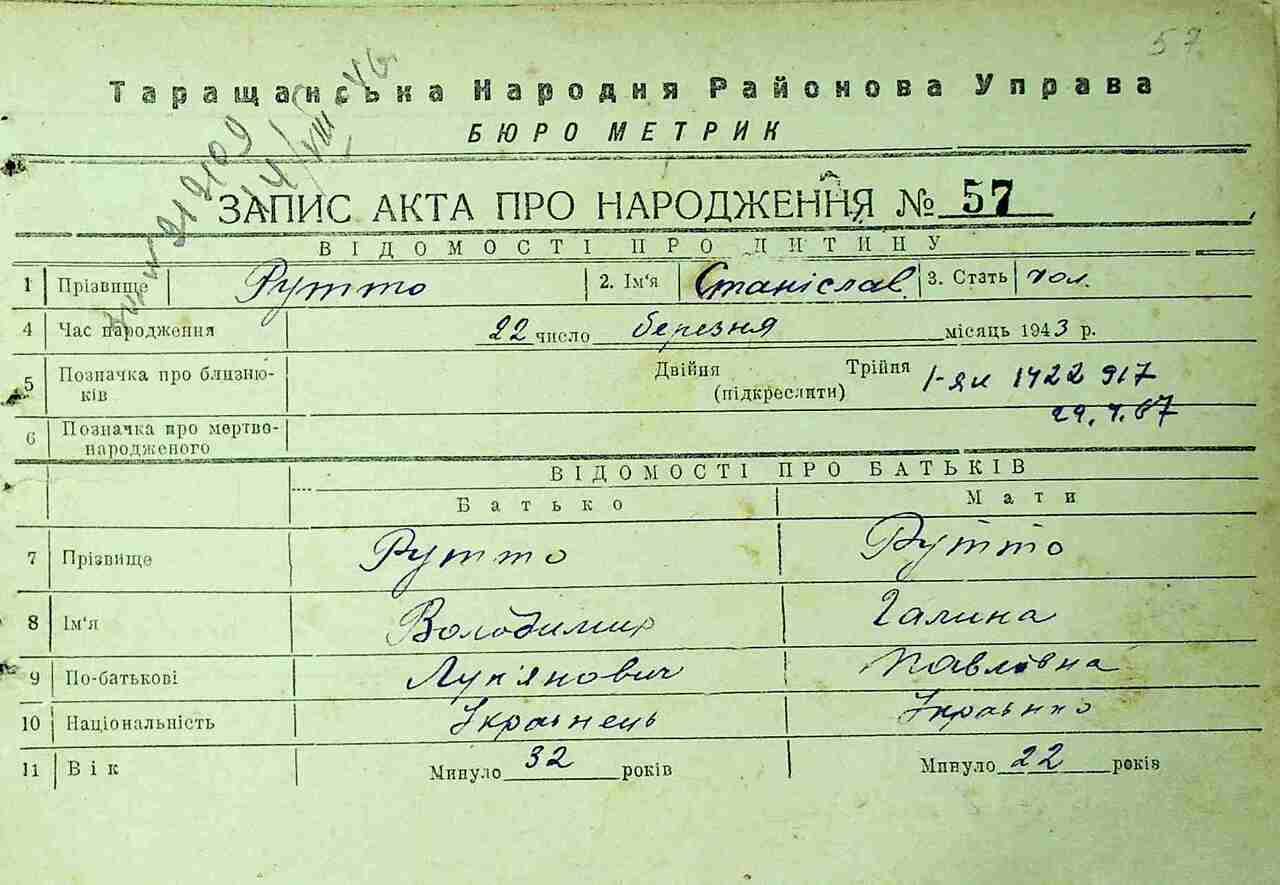 57
Таращанська Народня Районова Управа
БЮРО МЕТРИК
212109
ЗАПИС АКТА ПРО НАРОДЖЕННЯ № 57
ВІДОМОСТІ ПРО ДИТИНУ
1 Прізвище Рутто 2. Ім'я Станіслав. 3. Стать чол.
4 Час народження 22 число березня місяць 1943 р.
5 Позначка про близню-ків Двійня Трійня (підкреслити)
1422 917
6 Позначка про мертво-народженого
ВІДОМОСТІ ПРО БАТЬКІВ
Батько Мати
7 Прізвище Рутто Рутто
8 Ім'я Володимир Галина
9 По-батькові Лук'янович Павлівна
10 Національність Українець Українка
11 Вік Минуло 32 років Минуло 22 років